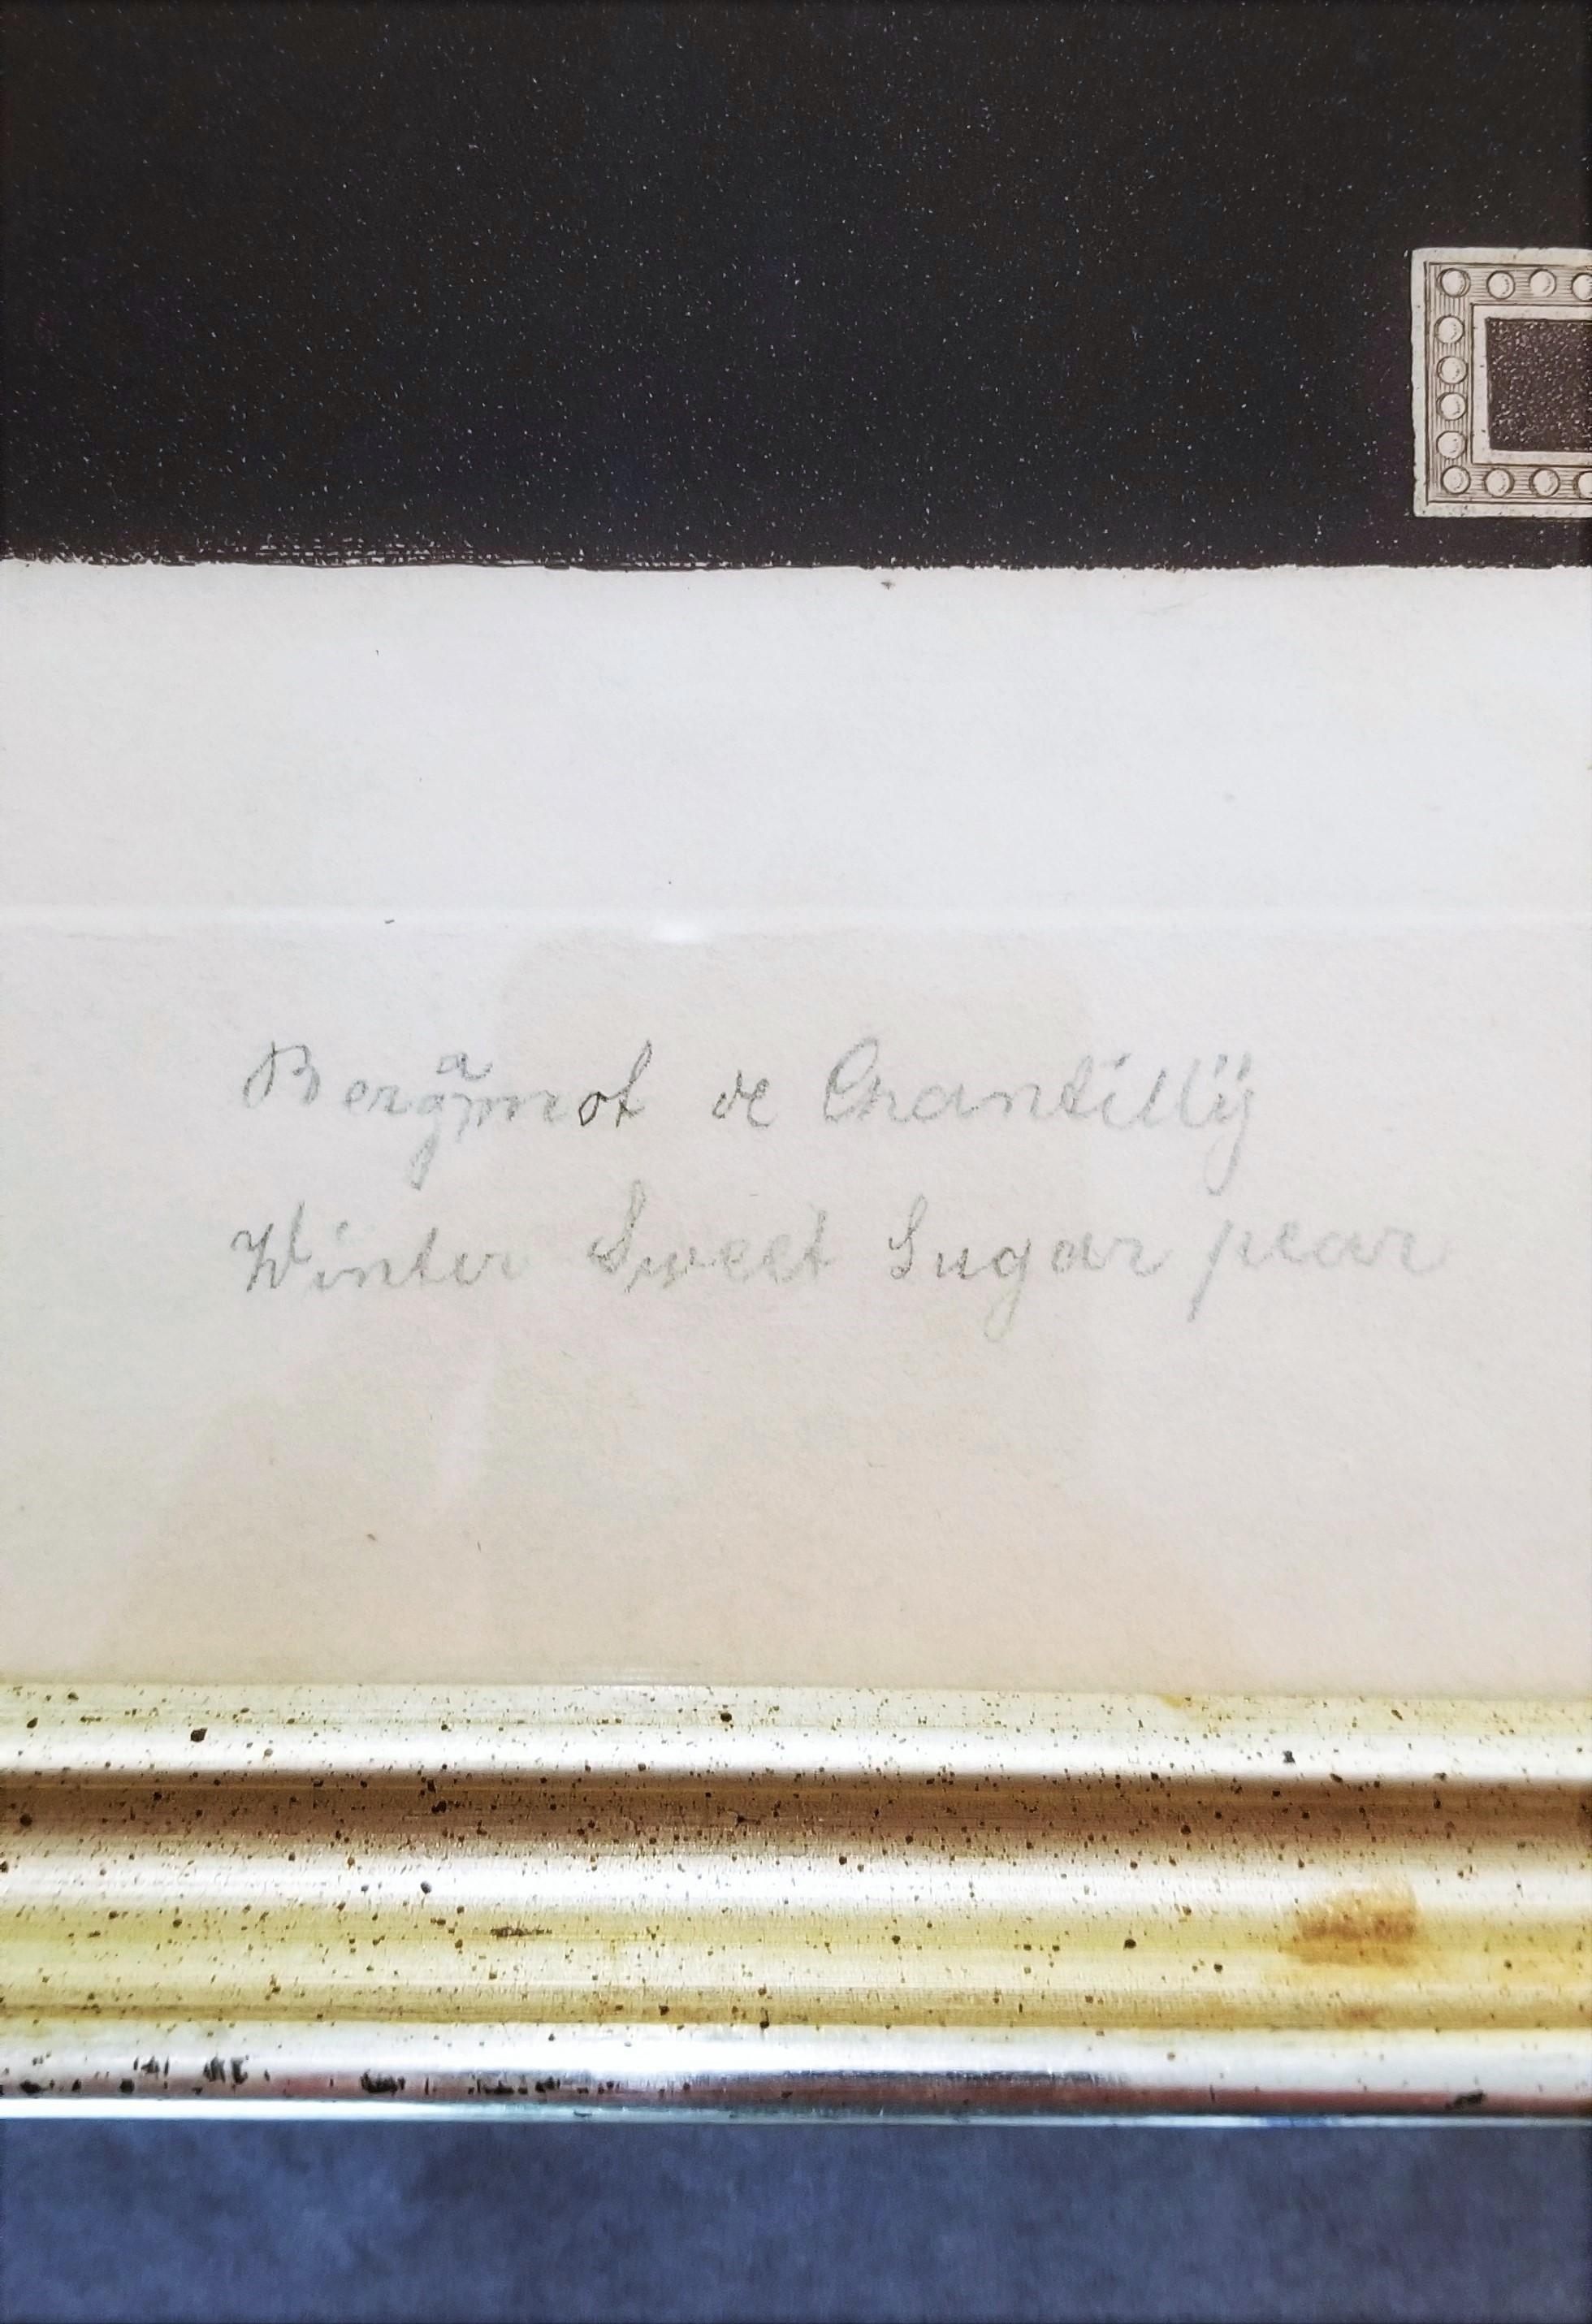 Bergamot de Chantillÿ
Winter Sweet Sugar pear